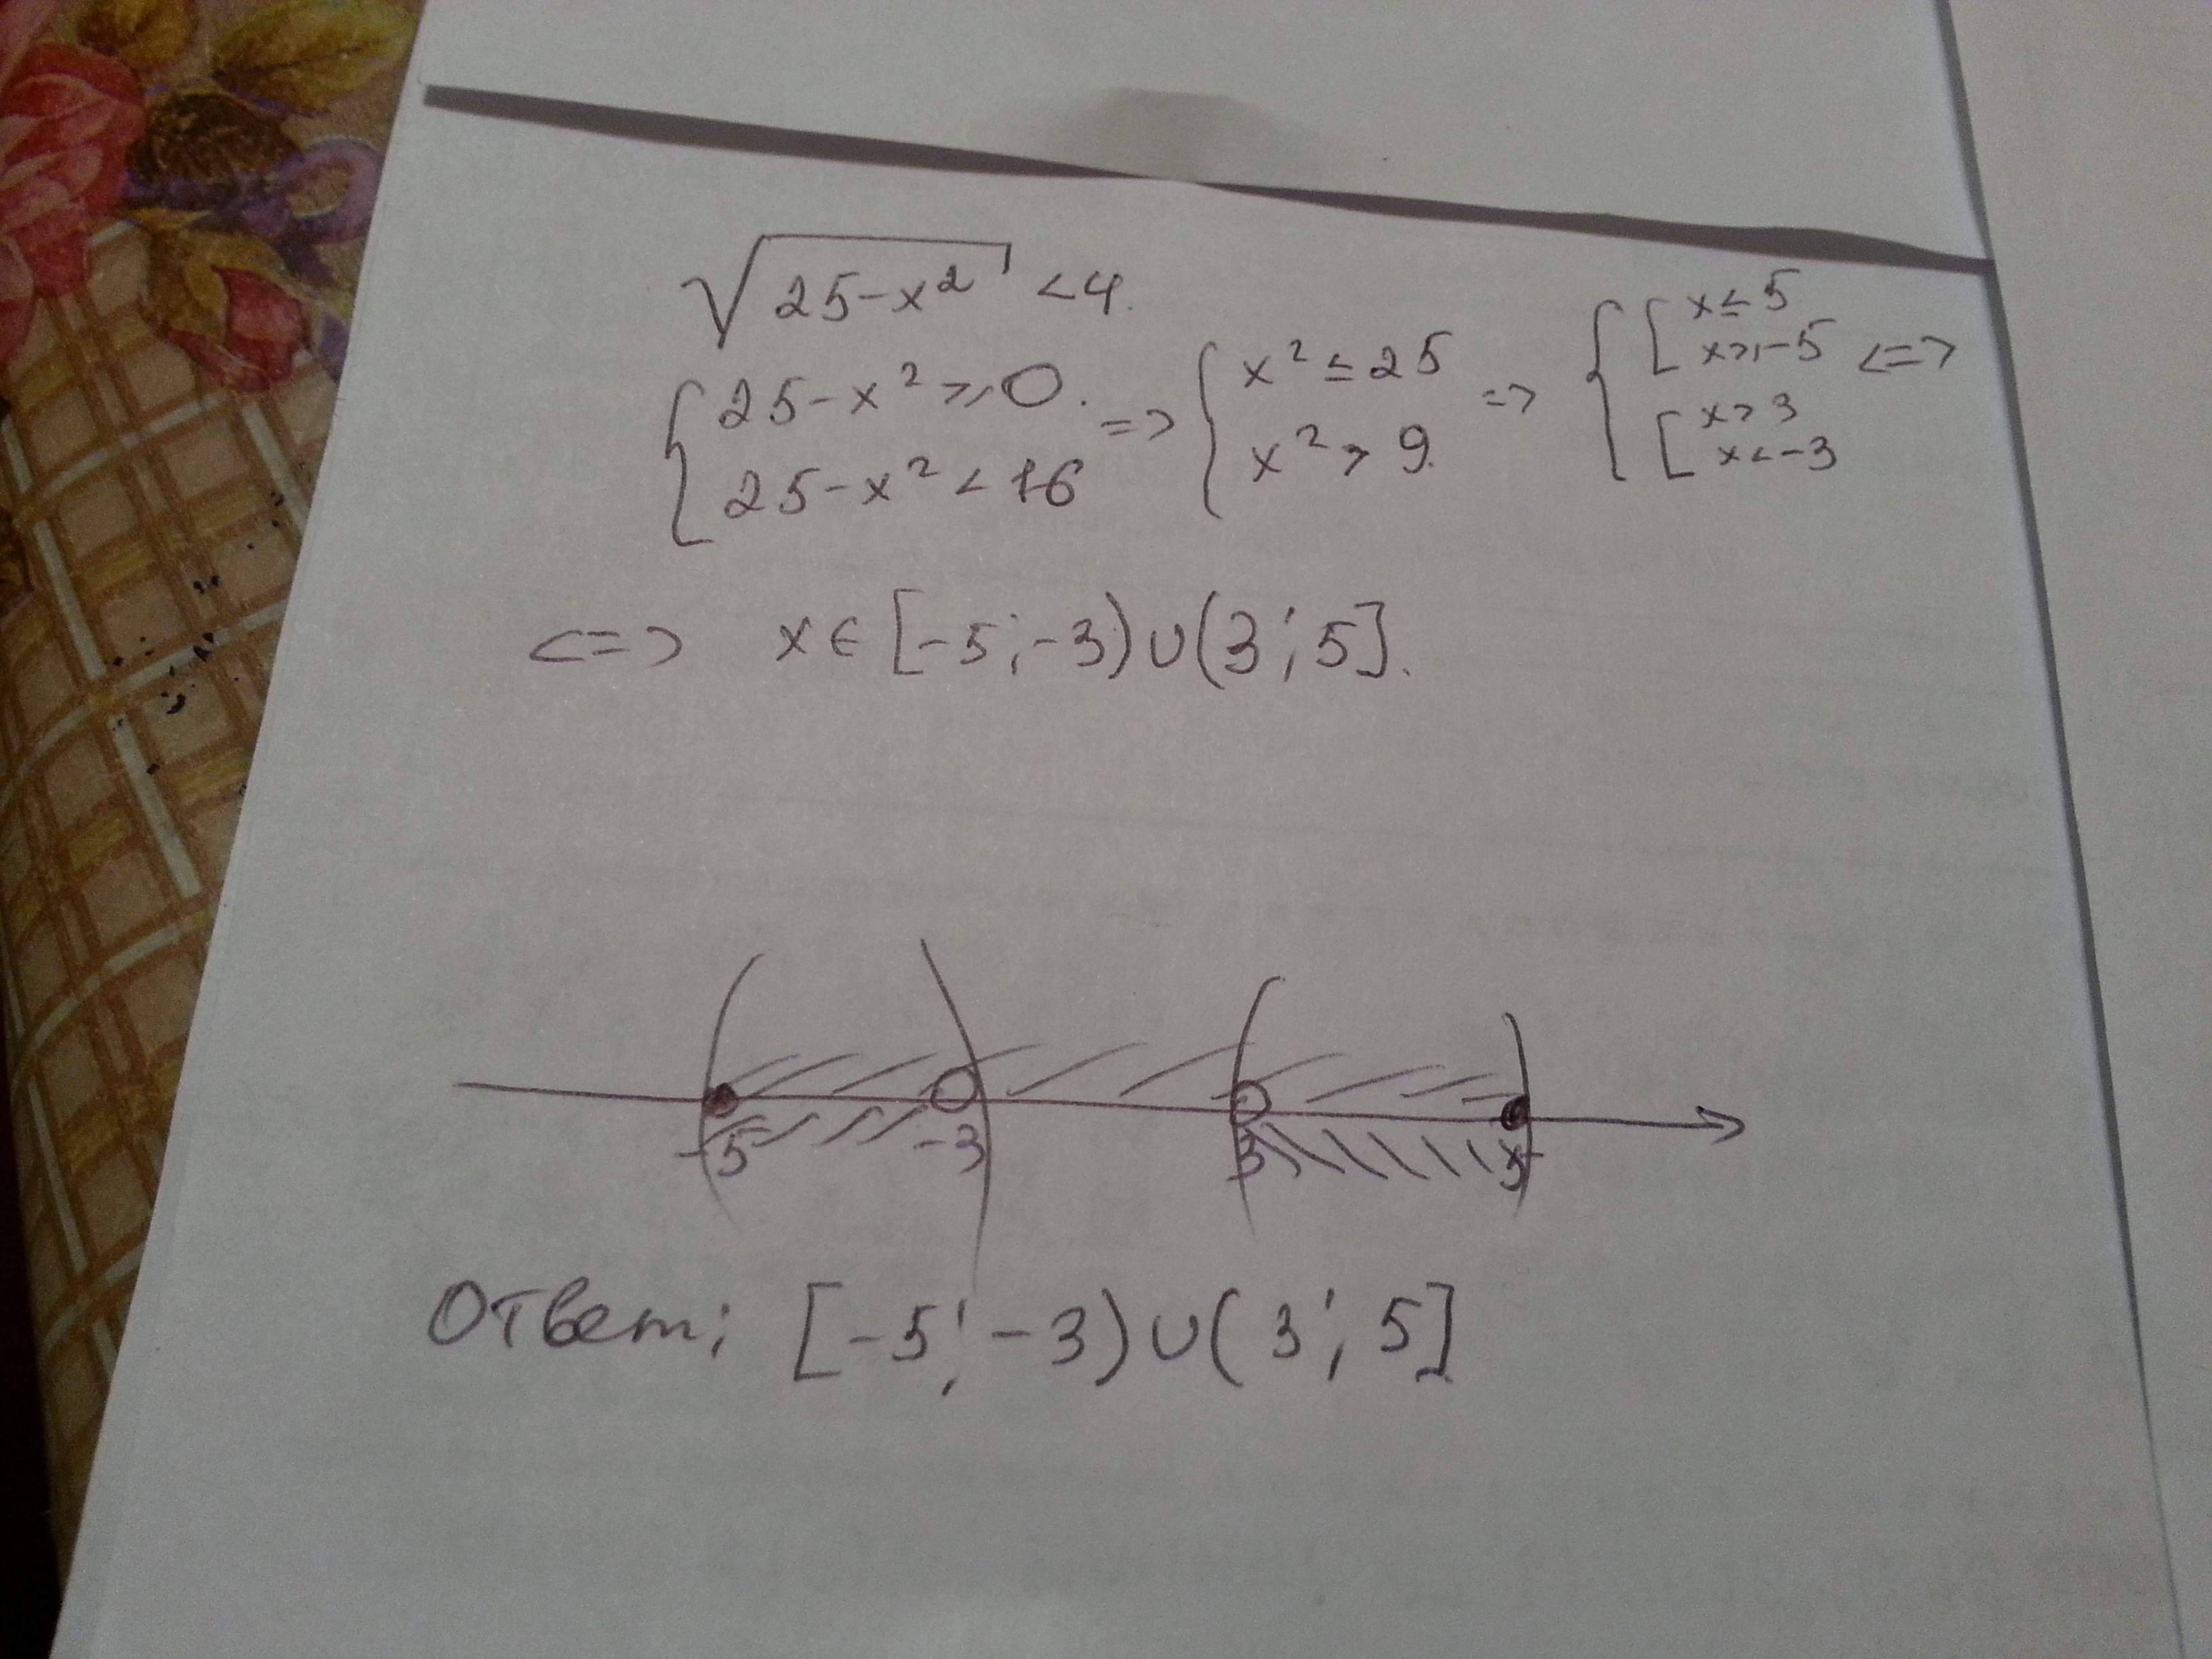 √(25-x²) <4.
{ 25-x² ≥ 0. => { x² ≤ 25 => { [ x ≤ 5 <=>
25-x² < 16 x² > 9. x ≥ -5
[ x > 3
x < -3
<=> x ∈ [-5; -3) ∪ (3; 5].
-5 -3 3 5
Ответ: [-5; -3) ∪ (3; 5]